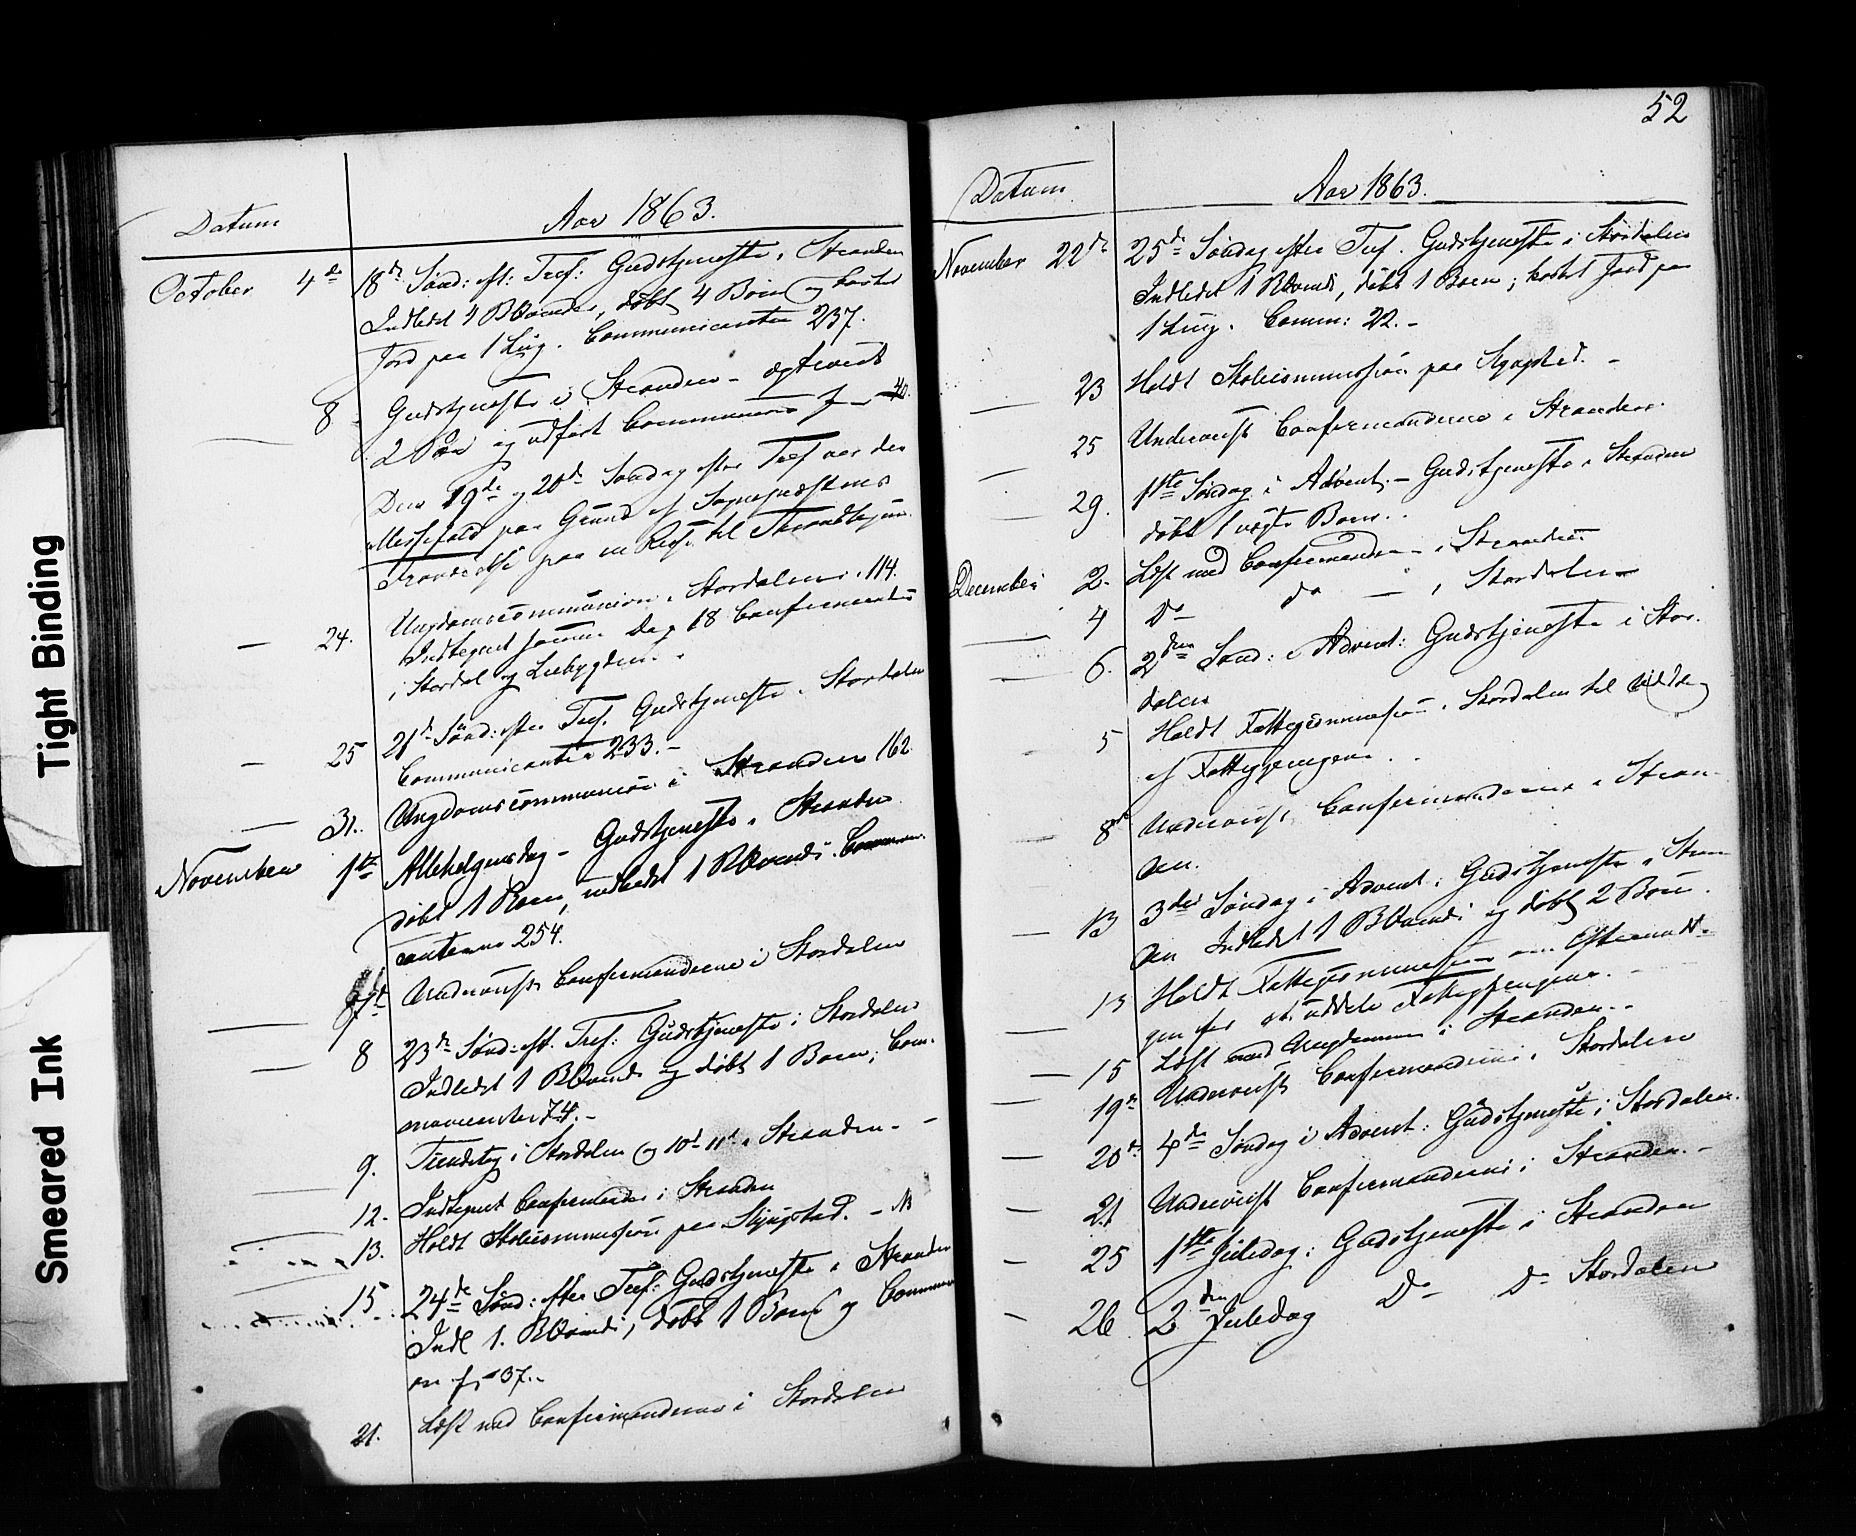 Tight Binding
Smeared Ink
Datum
Aar 1863.
October 4de 18de Sønd: eft: Tref: Gudstjeneste i Stranden
Indledet 1 BKvinde, døbt 4 Børn og kastet
Jord paa 1 Liig. Communicanter 237.
8 Gudstjeneste i Stranden –
2 Par og udført Communion
Den 19de og 20de Søndag efter Tref var der
Messefald paa Grund af Sognepræstens
paa en Reise til Throndhjem.
— 24. Ungdomscommunion i Stordalen. 114.
Indtegnet samme Dag 18 Confirmanter
i Stordal og Liebygden.
— 25 21de Sønd: efter Tref. Gudstjeneste i Stordalen
Communicanter 233. –
— 31. Ungdomscommunion i Stranden 162
November 1ste Allehelgensdag – Gudstjeneste i Stranden
døbt 1 Barn, indledet 1 BKvinde. Commun-
canterne 254.
— 7de Underviist Confirmanderne i Stordalen
— 8 23de Sønd: eft. Tref: Gudstjeneste i Stordalen
Indledet 1 BKvinde og døbt 1 Barn; Com-
74. –
— 9. Tiendetog i Stordalen og 10d 11d i Stranden. –
— 12. Indtegnet Confirmander i Stranden
13. Holdt Skolecommission paa
15 24de Sønd: efter Tref: Gudstjeneste i Stranden
Indl 1. BKvinde, døbt 1 Barn og Commun
on f– 37. –
21. Læst med Confirmanderne i Stordalen
52
Datum
Aar 1863.
November 22de 25de Søndag efter Tref. Gudstjeneste i Stordalen
Indledet 1 BKvinde, døbt 1 Barn; kastet Jord paa
1 Liig. Comm: 22. –
— 23 Holdt Skolecommission paa
— 25 Underviist Confirmanderne i Stranden.
— 29. 1ste Søndag i Advent. – Gudstjeneste i Stranden
døbt 1 Barn.
December 2. Læst med Confirmanderne i Stranden
— 4 Do do — i Stordalen
— 6. 2den Sønd: i Advent: Gudstjeneste i Stor-
dalen
5 Holdt Fattigcommission i Stordalen til Uddeling
af Fattigpengene.
— 8de Underviist Confirmanderne i Stran-
den.
— 13 3die Søndag i Advent: Gudstjeneste i Stran-
den Indledet 1 BKvinde og døbt 2 Børn.
— 13 Holdt Fattigcommission om Eftermidda-
gen for at uddele Fattigpengene.
— 15 Læst med Ungdommen i Stranden.
— 19de Underviist Confirmanderne i Stordalen
— 20de 4de Søndag i Advent: Gudstjeneste i Stordalen.
— 21 Underviist Confirmanderne i Stranden. –
— 25 1ste Juledag: Gudstjeneste i Stranden
— 26 2den Juledag Do Do Stordalen